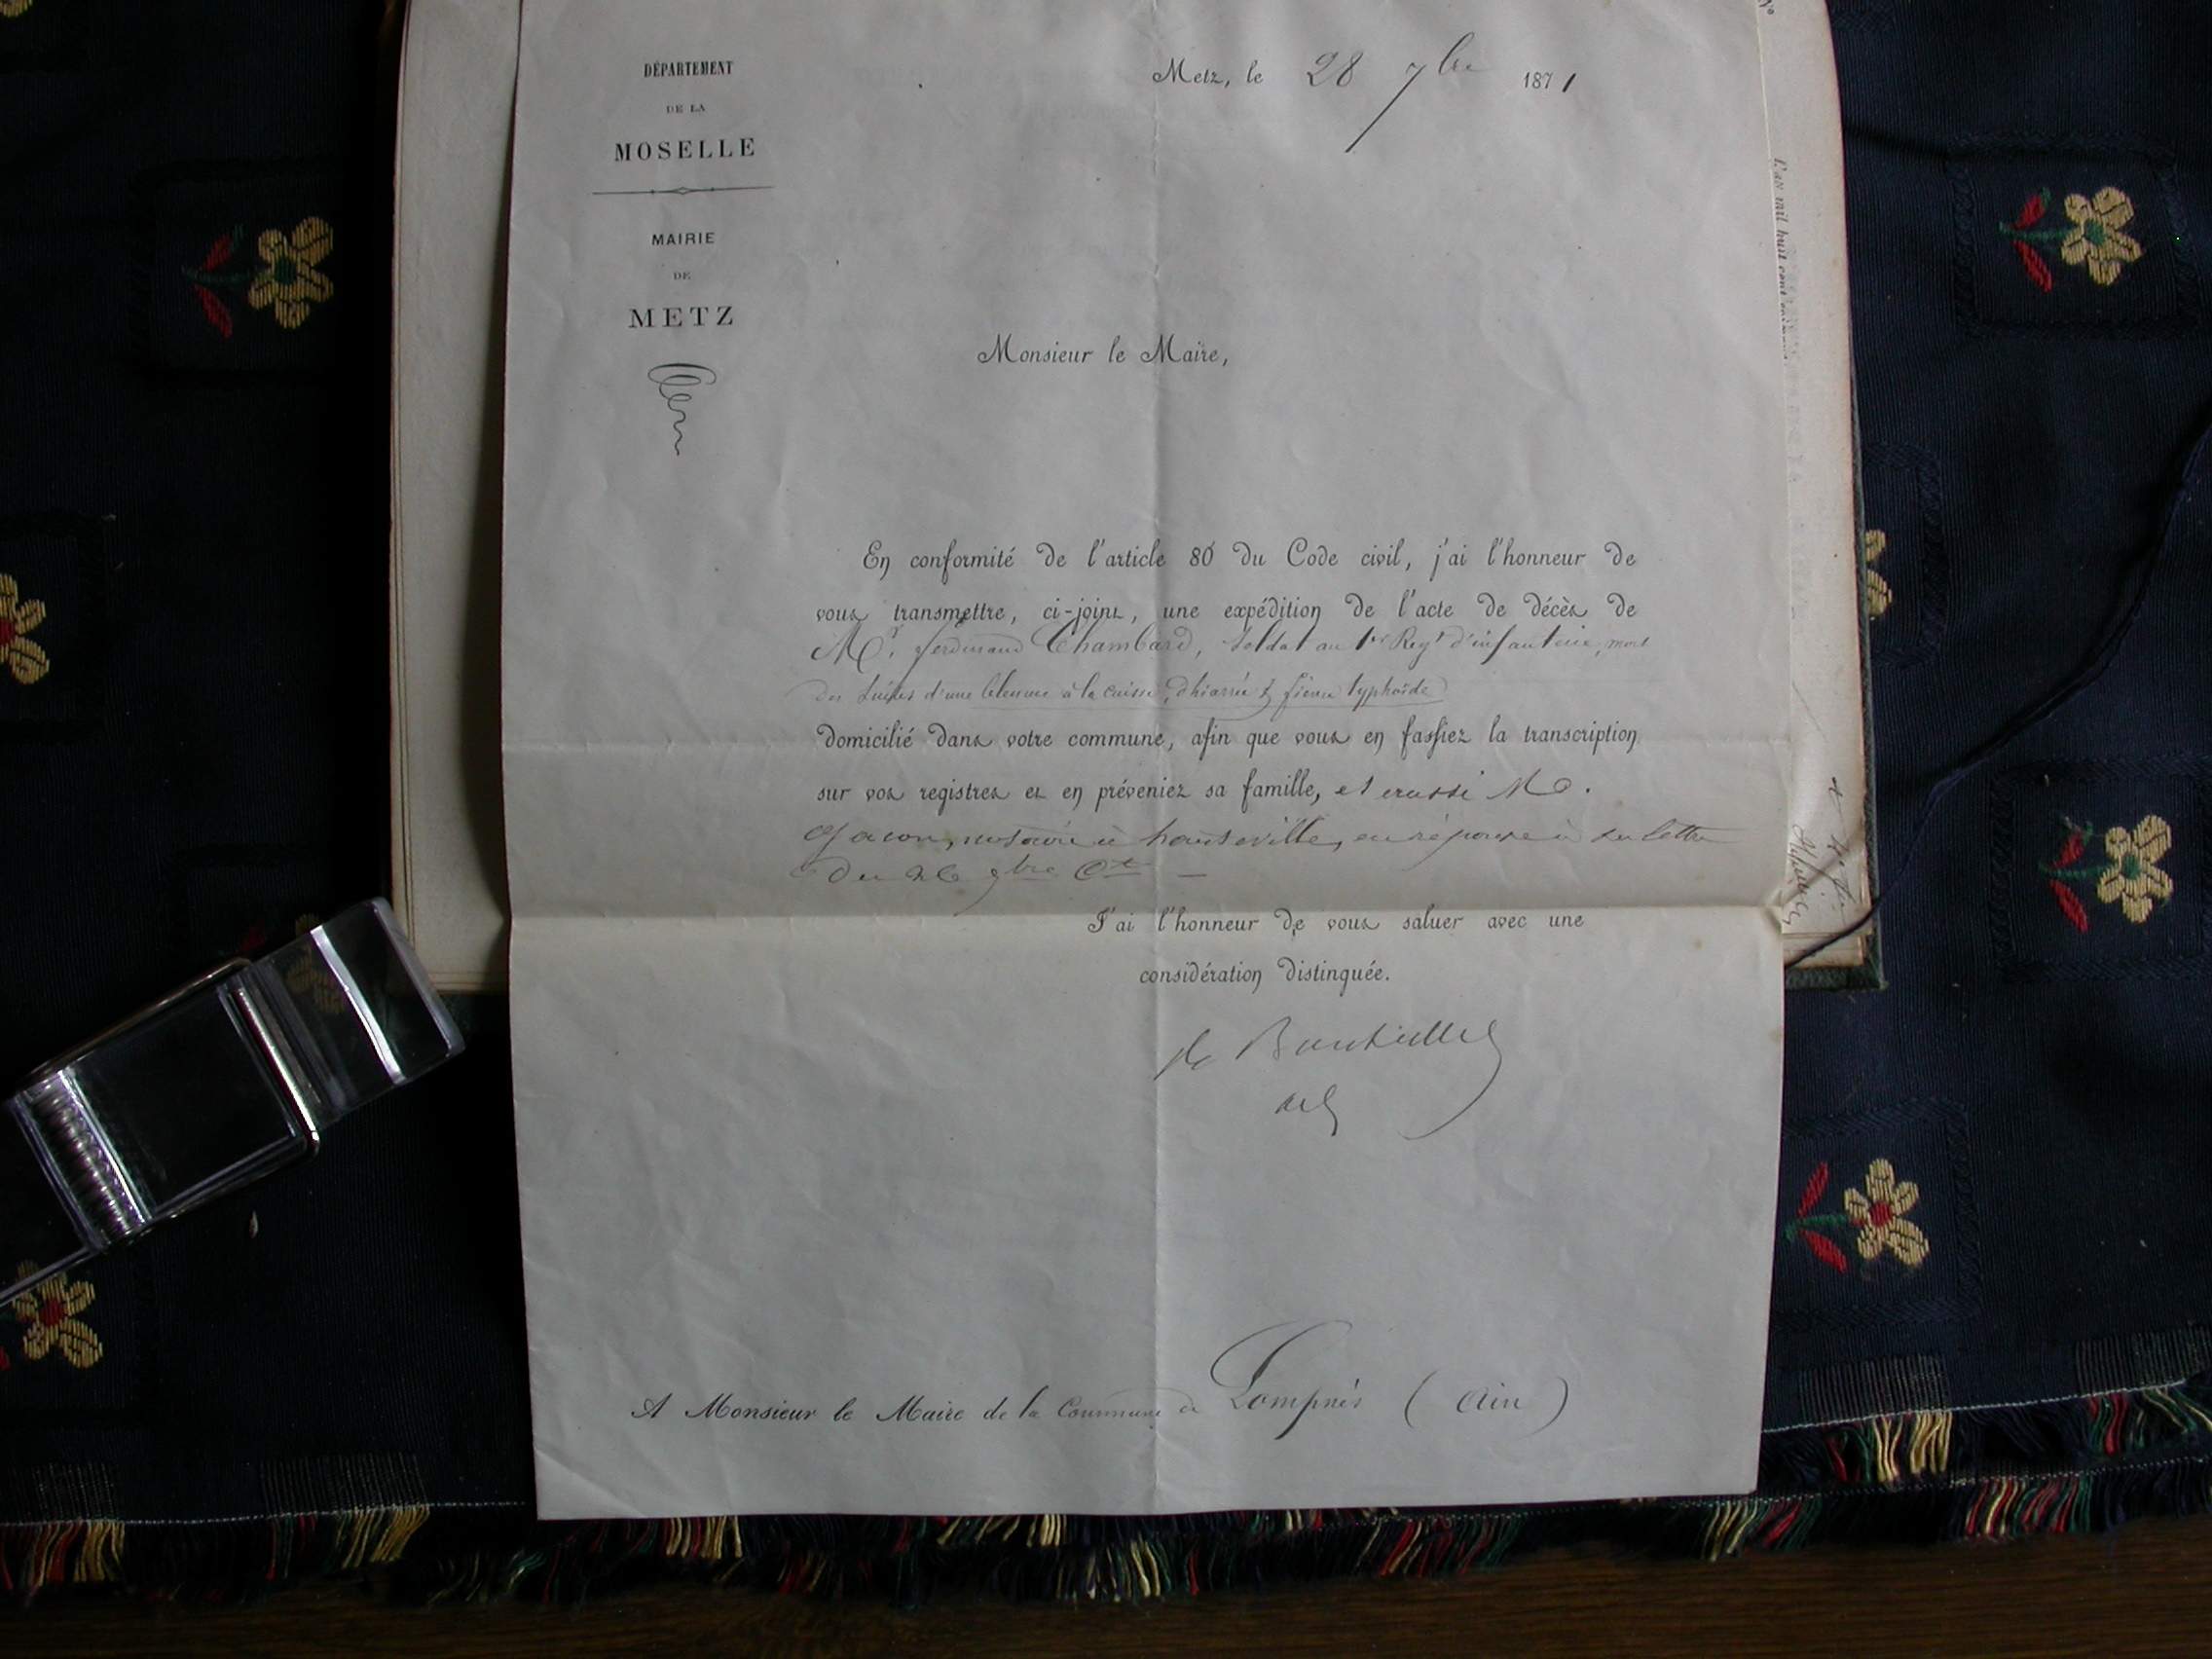 DÉPARTEMENT
DE LA
MOSELLE
MAIRIE
DE
METZ
Metz, le 28 7bre 1871
Monsieur le Maire,
En conformité de l'article 80 du Code civil, j'ai l'honneur de
vous transmettre, ci-joint, une expédition de l'acte de décès de
Mr. Ferdinand Chambard, Soldat au 1er Regt d'infanterie, mort
des suites d'une blessure à la cuisse, dhiarrée & fièvre typhoïde
domicilié dans votre commune, afin que vous en fassiez la transcription
sur vos registres et en préveniez sa famille, et aussi M.
notaire à hauteville, en réponse à sa lettre
du 26 7bre Ct
J'ai l'honneur de vous saluer avec une
considération distinguée.
A Monsieur le Maire de la Commune de Lompnès (Ain)
N°
L'an mil huit cent